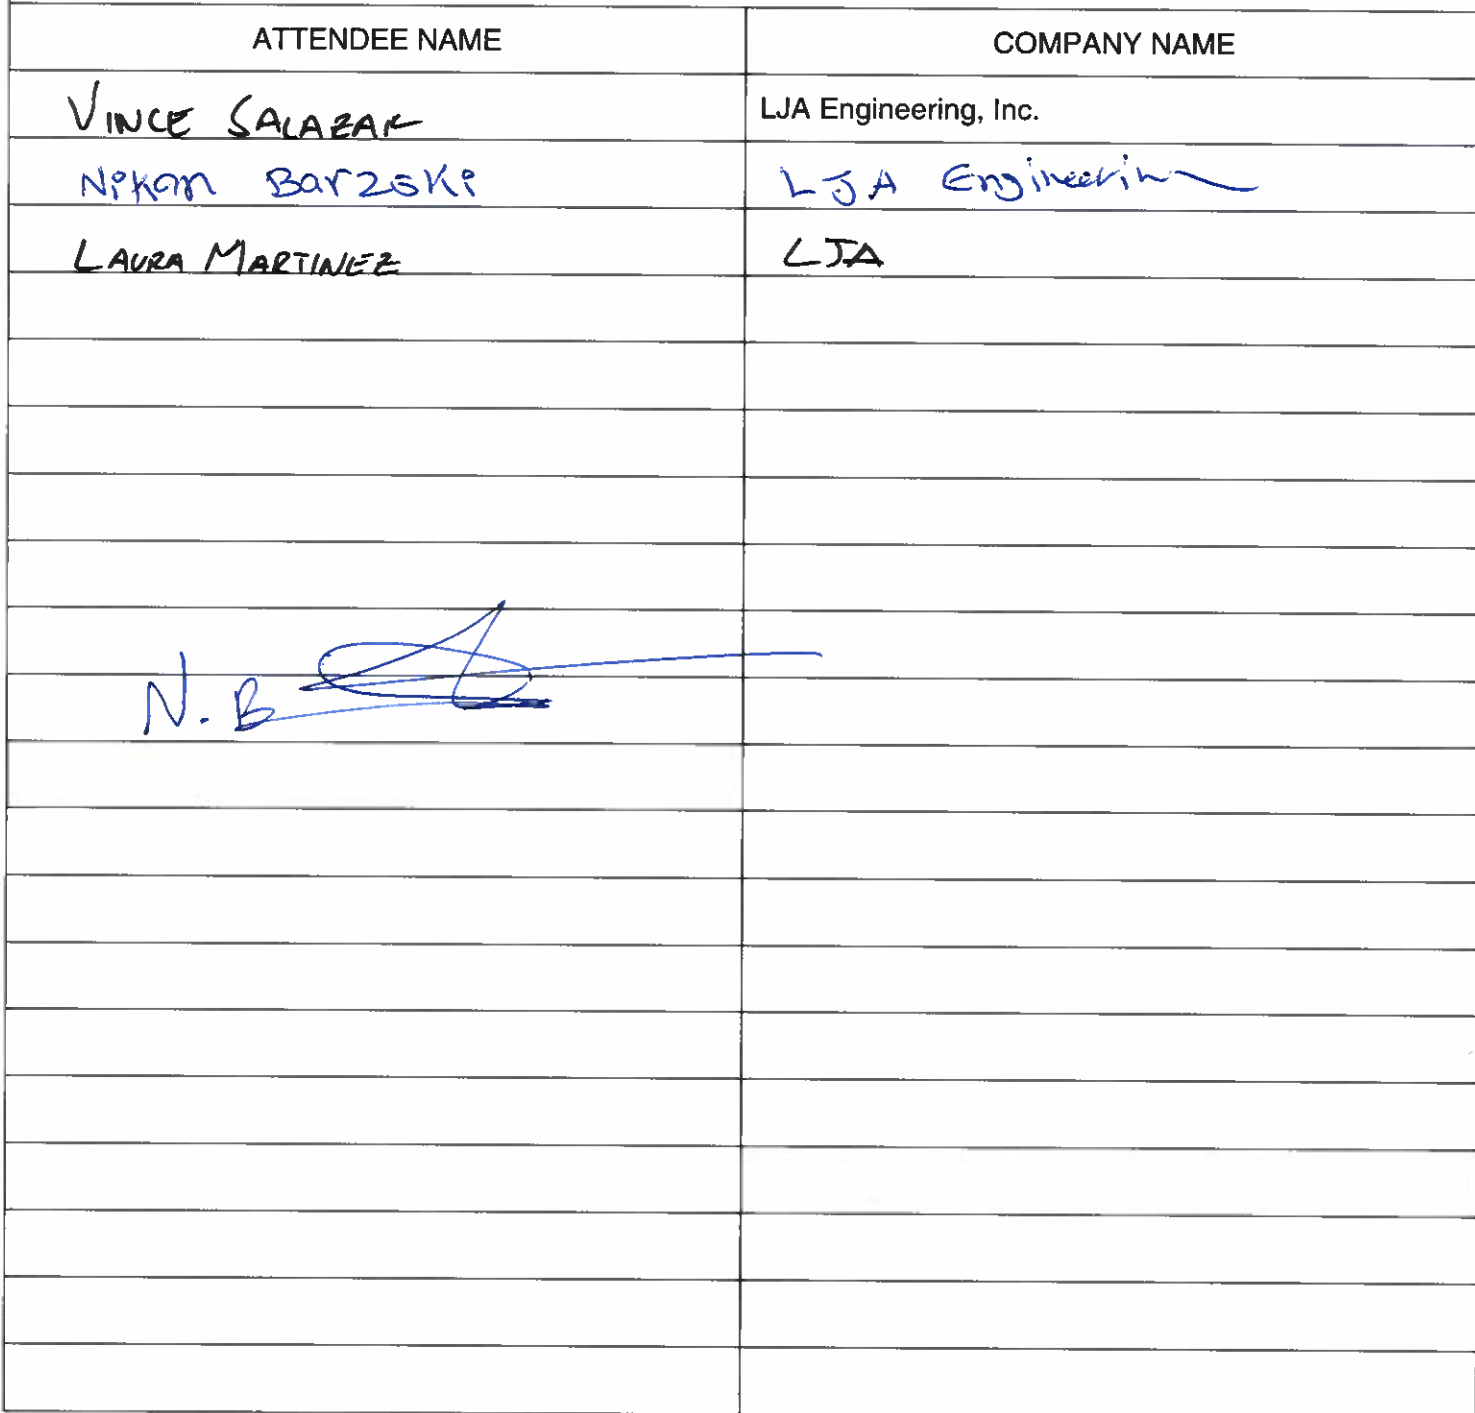 ATTENDEE NAME COMPANY NAME
VINCE SALAZAR LJA Engineering, Inc.
Nikan Barzski LJA Engineering
LAURA MARTINEZ LJA
N. B